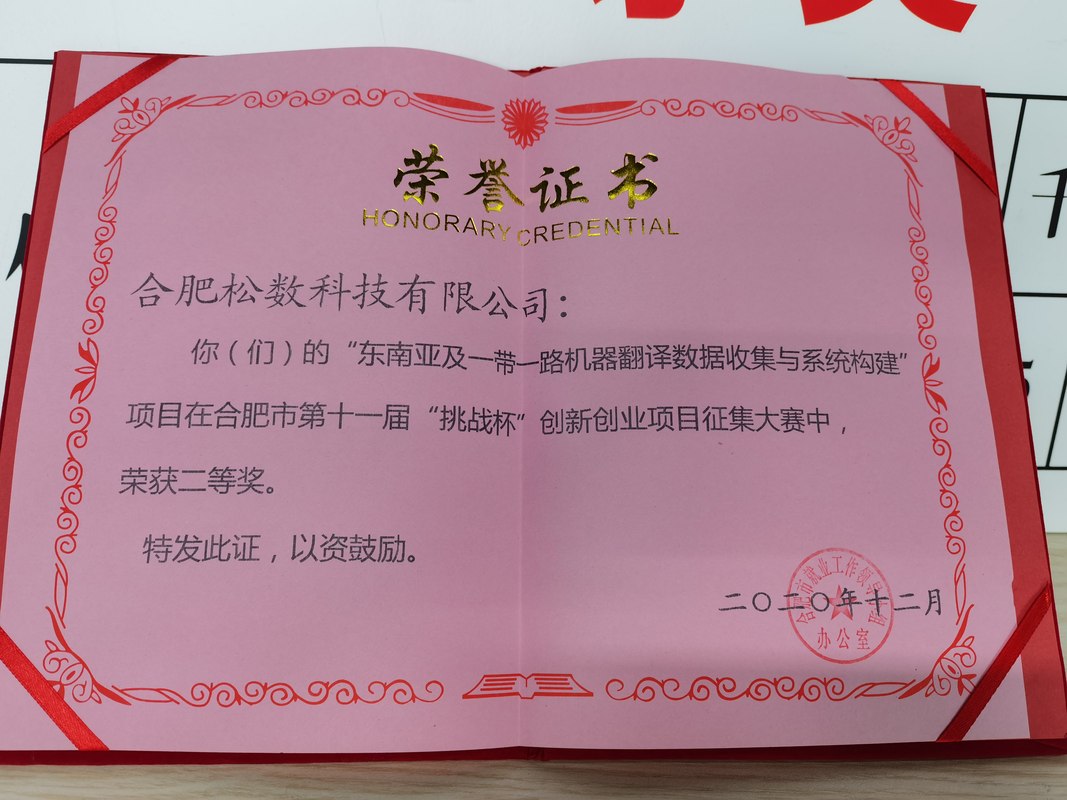 荣誉证书
HONORARY CREDENTIAL
合肥松数科技有限公司：
你（们）的“东南亚及一带一路机器翻译数据收集与系统构建”
项目在合肥市第十一届“挑战杯”创新创业项目征集大赛中，
荣获二等奖。
特发此证，以资鼓励。
二〇二〇年十二月
合肥市就业工作领导小组
办公室